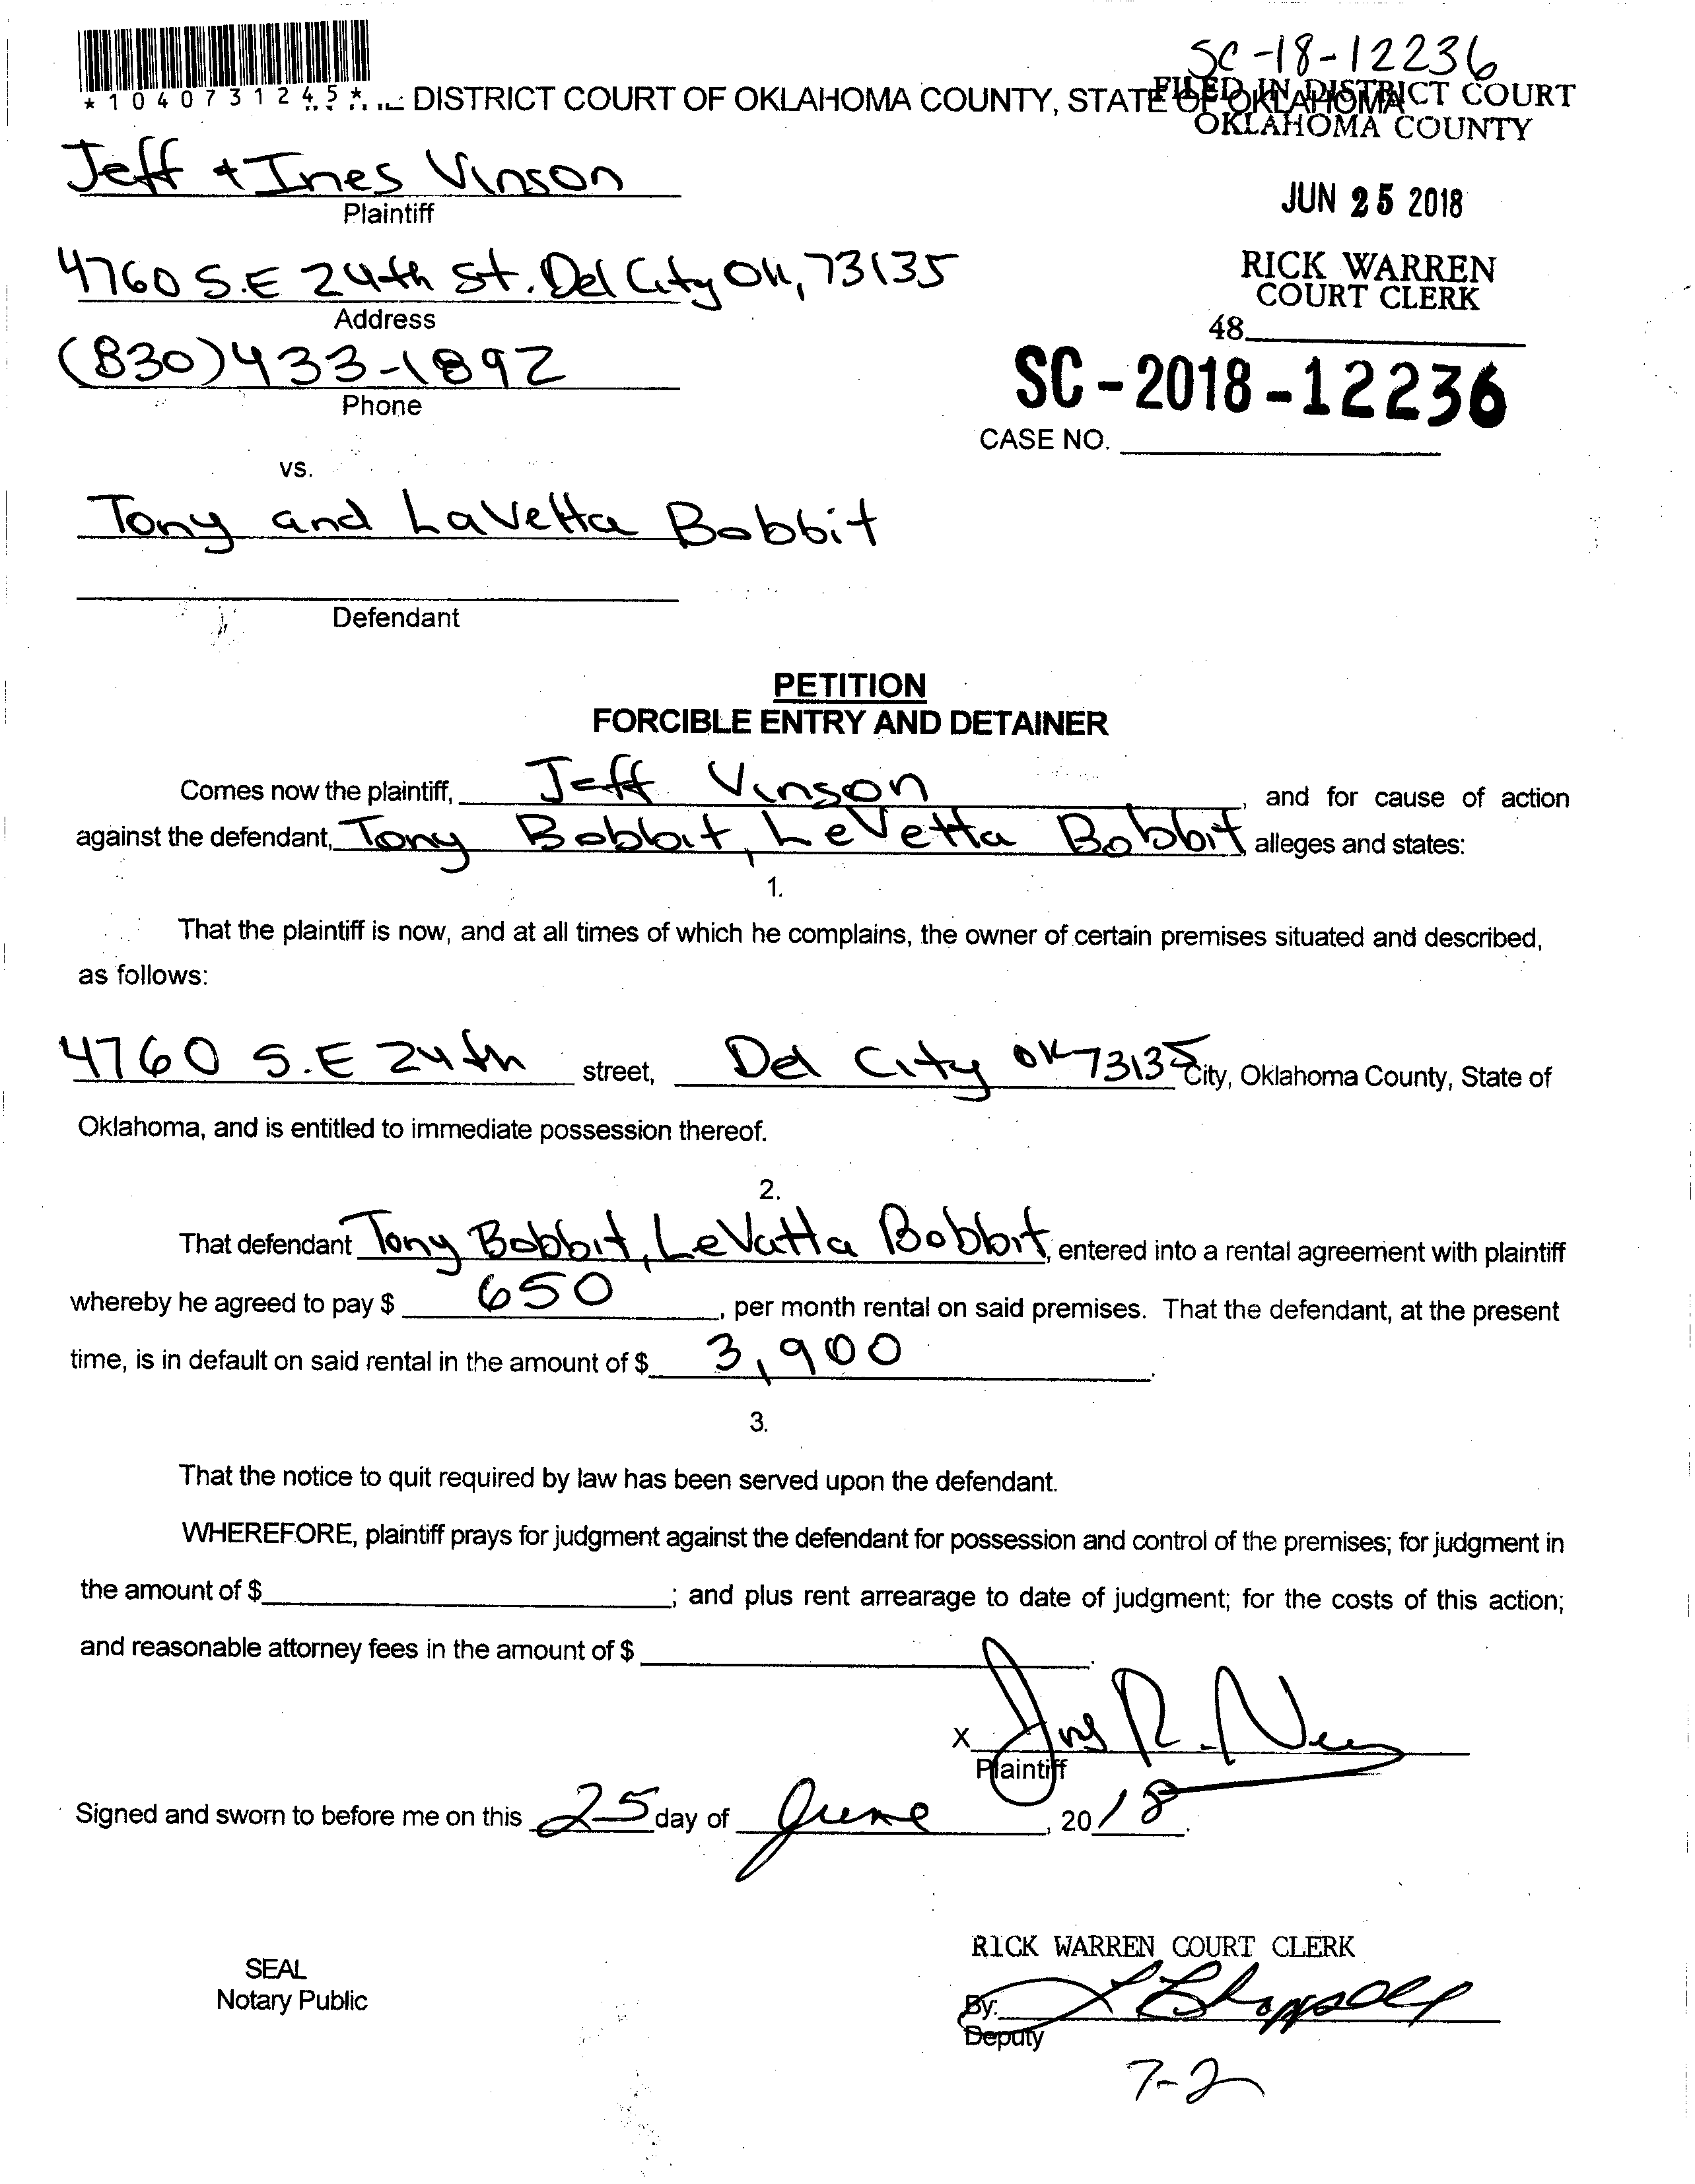 SC-18-12236
*1040731245*
DISTRICT COURT OF OKLAHOMA COUNTY, STATE OF OKLAHOMA
FILED IN DISTRICT COURT
OKLAHOMA COUNTY
Jeff + Ines Vinson
Plaintiff
JUN 25 2018
4760 S.E 24th St. Del City OK, 73135
Address
RICK WARREN
COURT CLERK
48
(830)433-1892
Phone
SC-2018-12236
CASE NO.
vs.
Tony and LaVetta Bobbit
Defendant
PETITION
FORCIBLE ENTRY AND DETAINER
Comes now the plaintiff, Jeff Vinson, and for cause of action
against the defendant, Tony Bobbit, LeVetta Bobbit alleges and states:
1.
That the plaintiff is now, and at all times of which he complains, the owner of certain premises situated and described,
as follows:
4760 S.E 24th street, Del City OK 73135 City, Oklahoma County, State of
Oklahoma, and is entitled to immediate possession thereof.
2.
That defendant Tony Bobbit, LeVatta Bobbit, entered into a rental agreement with plaintiff
whereby he agreed to pay $ 650, per month rental on said premises. That the defendant, at the present
time, is in default on said rental in the amount of $ 3,900.
3.
That the notice to quit required by law has been served upon the defendant.
WHEREFORE, plaintiff prays for judgment against the defendant for possession and control of the premises; for judgment in
the amount of $ ; and plus rent arrearage to date of judgment; for the costs of this action;
and reasonable attorney fees in the amount of $ .
X
Plaintiff
Signed and sworn to before me on this 25 day of June, 2018.
RICK WARREN COURT CLERK
SEAL
Notary Public
By:
Deputy
7-2